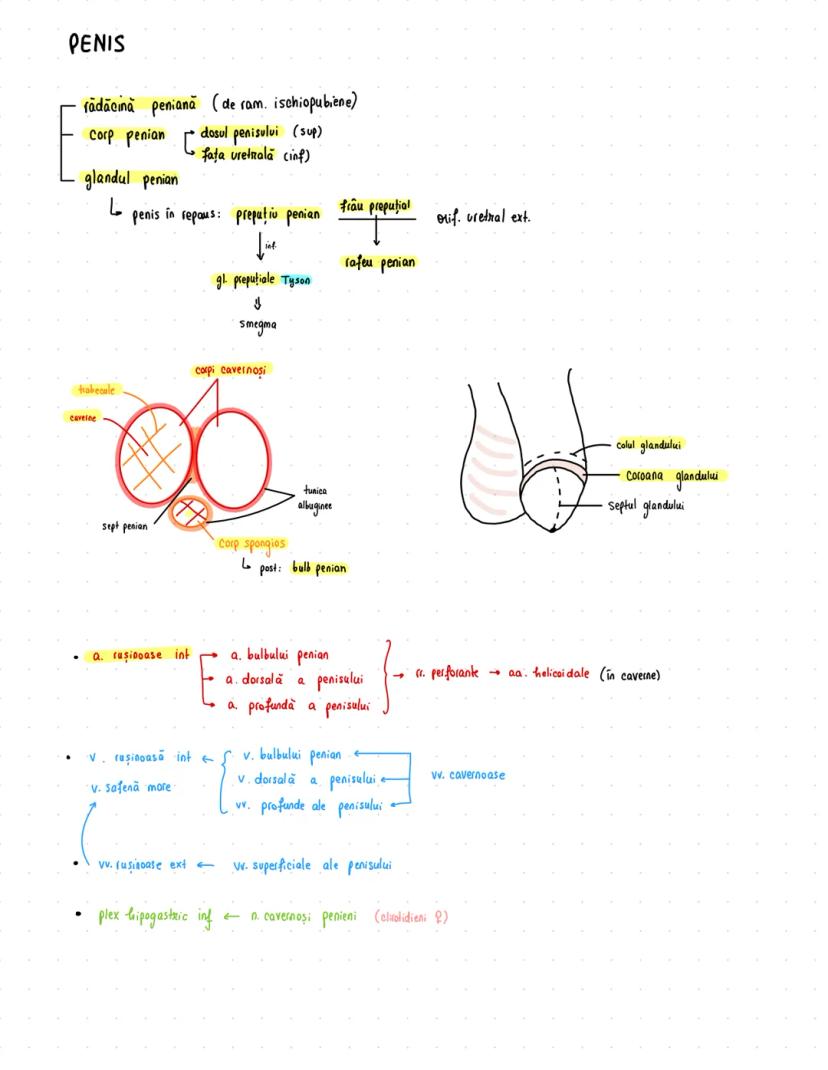 PENIS
rădăcină peniană (de ram. ischiopubiene)
corp penian
dosul penisului (sup)
fața uretrală (inf)
glandul penian
penis în repaus: prepuțiu penian
frâu prepuțial
orif. uretral ext.
inf.
rafeu penian
gl. prepuțiale Tyson
smegma
corpi cavernoși
trabecule
caverne
sept penian
tunica
albuginee
corp spongios
post: bulb penian
colul glandului
coroana glandului
septul glandului
• a. rușinoase int
a. bulbului penian
a. dorsală a penisului
a. profundă a penisului
→ rr. perforante → aa. helicoidale (în caverne)
• v. rușinoasă int ← v. bulbului penian
v. safenă mare
v. dorsală a penisului
vv. profunde ale penisului
vv. cavernoase
• vv. rușinoase ext ← vv. superficiale ale penisului
• plex hipogastric inf ← n. cavernoși penieni (clitoridieni ♀)